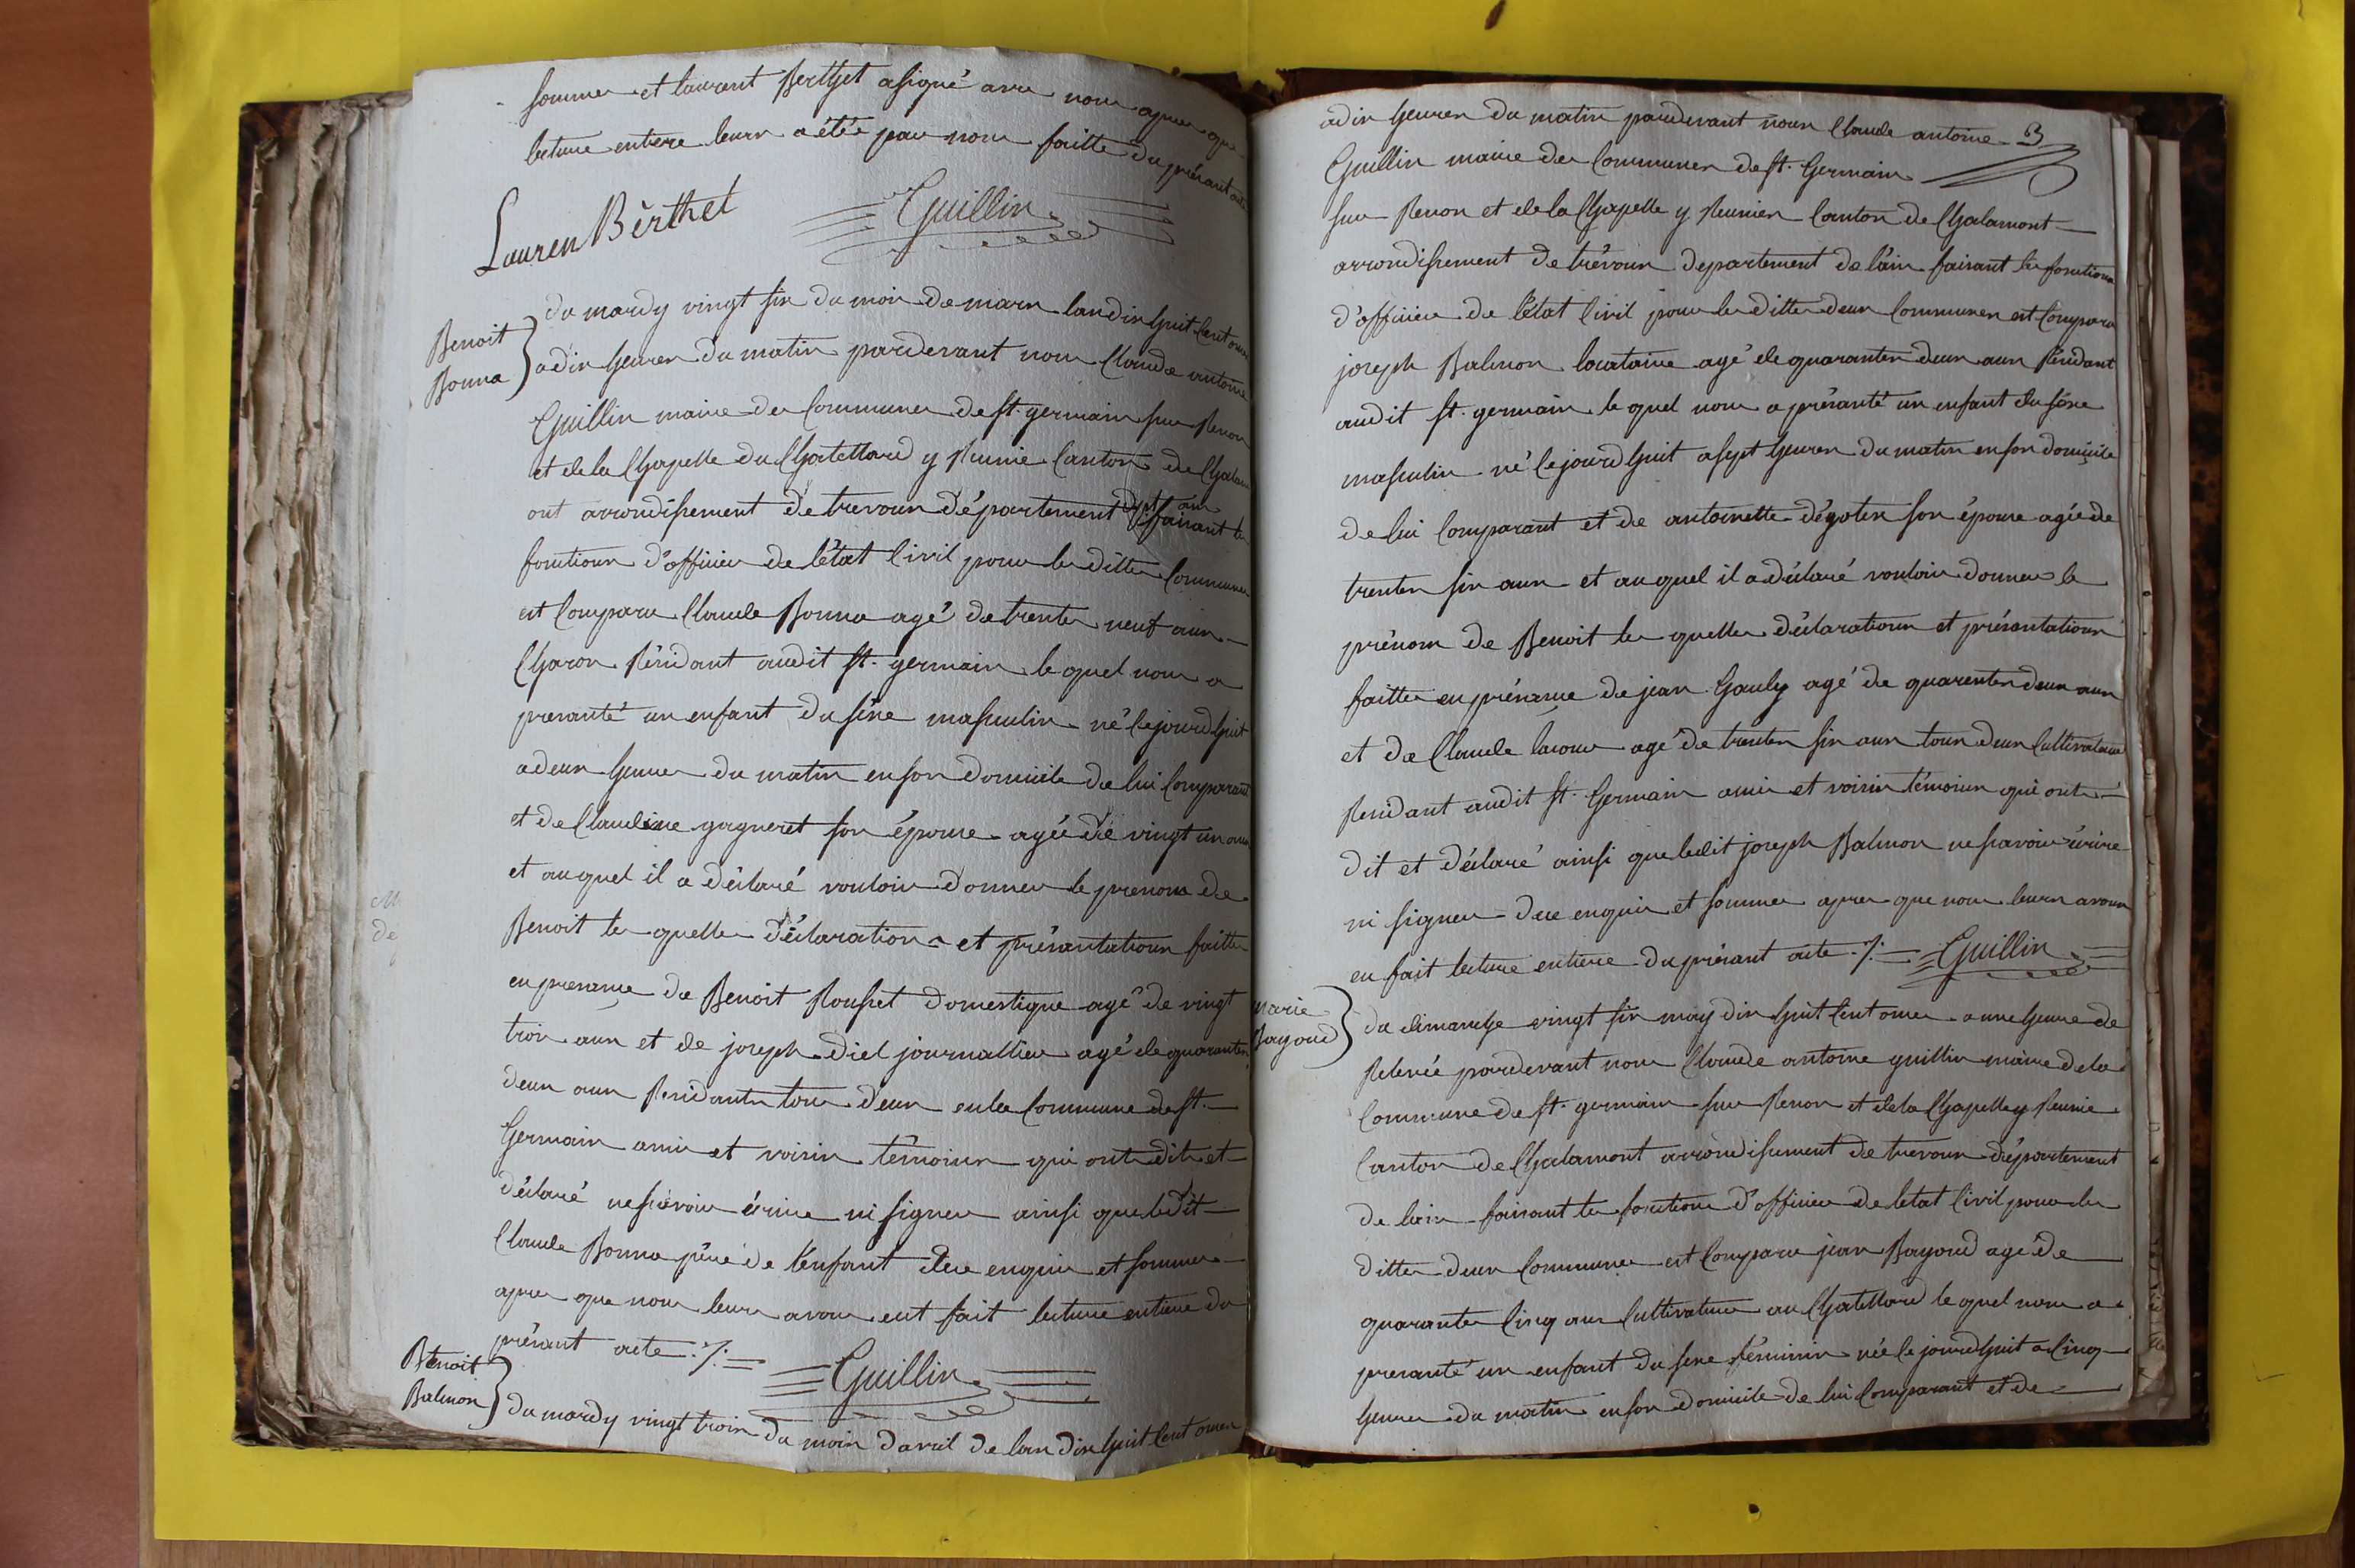 sommes et laurent Berthet a signé avec nous apres que
lecture entiere leurs a étée par nous faitte du présant acte
Lauren Bèrthet Guillin
Benoit
Bonna
du mardy vingt six du mois de mars lan dix huit cent onze
a dix heures du matin pardevant nous Claude antoine
Guillin maire des Communes de st. germain sur Renon
et de la Chapelle du Chatellard y Réunie Canton de Chalam
ont arrondissement de trevoux département dept ain faisant les
fonctions d'officier de l'état Civil pour les dittes Communes
est Comparu Claude Bonna agé de trentes neuf ans
Charon Résidant audit st. germain le quel nous a
presanté un enfant du sèxe masculin né Cejourdhuit
a deux heures du matin en son domicile de lui Comparant
et de Claudine gagneret son épouse agée de vingt un ans
et au quel il a déclaré vouloir donner le prenom de
Benoit les quelles déclarations et présantations faittes
en presance de Benoit Rousset domestique agé de vingt
trois ans et de joseph Diel journallier agé de quarantes
deux ans Residants tous deux en la Commune de st.
Germain amis et voisin témoins qui ont dit et
déclaré ne savoir écrire ni signer ainsi que ledit
Claude Bonna père de l'enfant de ce enquis et sommes
apres que nous leurs avons eut fait lecture entiere du
présant acte ./. Guillin
Benoit
Balmon
du mardy vingt trois du mois davril de lan dix huit cent onze
a dix heures du matin pardevant nous Claude antoine 3
Guillin maire des Communes de st. Germain
sur Renon et de la Chapelle y Reunies Canton de Chalamont
arrondissement de trévoux departement de l'ain faisant les fonctions
d'officier de l'état Civil pour les dittes deux Communes est Comparu
joseph Balmon locataire agé de quarantes deux ans Résidant
audit st. germain le quel nous a présanté un enfant du sèxe
masculin né Cejourdhuit a sept heures du matin en son domicile
de lui Comparant et de antoinette dégotex son épouse agée de
trentes six ans et au quel il a déclaré vouloir donner le
prénom de Benoit les quelles déclarations et présentations
faittes en présance de jean Gauly agé de quarentes deux ans
et de Claude lacour agé de trentes six ans tous deux Cultivateurs
Residant audit st. Germain amis et voisin témoins qui ont
dit et déclaré ainsi que ledit joseph Balmon ne savoir écrire
ni signer de ce enquis et sommes apres que nous leurs avons
eu fait lecture entiere du présant acte ./. Guillin
Marie
Bayoud
du dimanche vingt six may dix huit cent onze a une heure de
Relevée pardevant nous Claude antoine guillin maire de la
Commune de st. germain sur Renon et de la Chapelle y Reunie
Canton de Chalamont arrondissement de trevoux département
de lain faisant les fonctions d'officier de letat Civil pour les
dittes deux Communes est Comparu jean Bayoud agé de
quarantes Cinq ans Cultivateur au Chatellard le quel nous a
presanté un enfant du sexe féminin née le jourdhuit a Cinq
heures du matin en son domicile de lui Comparant et de